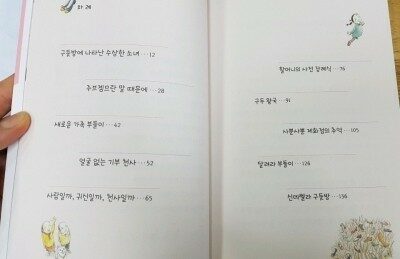 차 례
구둣방에 나타난 수상한 소녀 ··· 12
주브젬므란 말 때문에 ··· 28
새로운 가족 부들이 ··· 42
얼굴 없는 기부 천사 ··· 52
사람일까, 귀신일까, 천사일까 ··· 65
할머니의 사전 장례식 ··· 76
구두 왕국 ··· 91
사뿐사뿐 제화점의 추억 ··· 105
달려라 부들이 ··· 126
신데렐라 구둣방 ··· 136